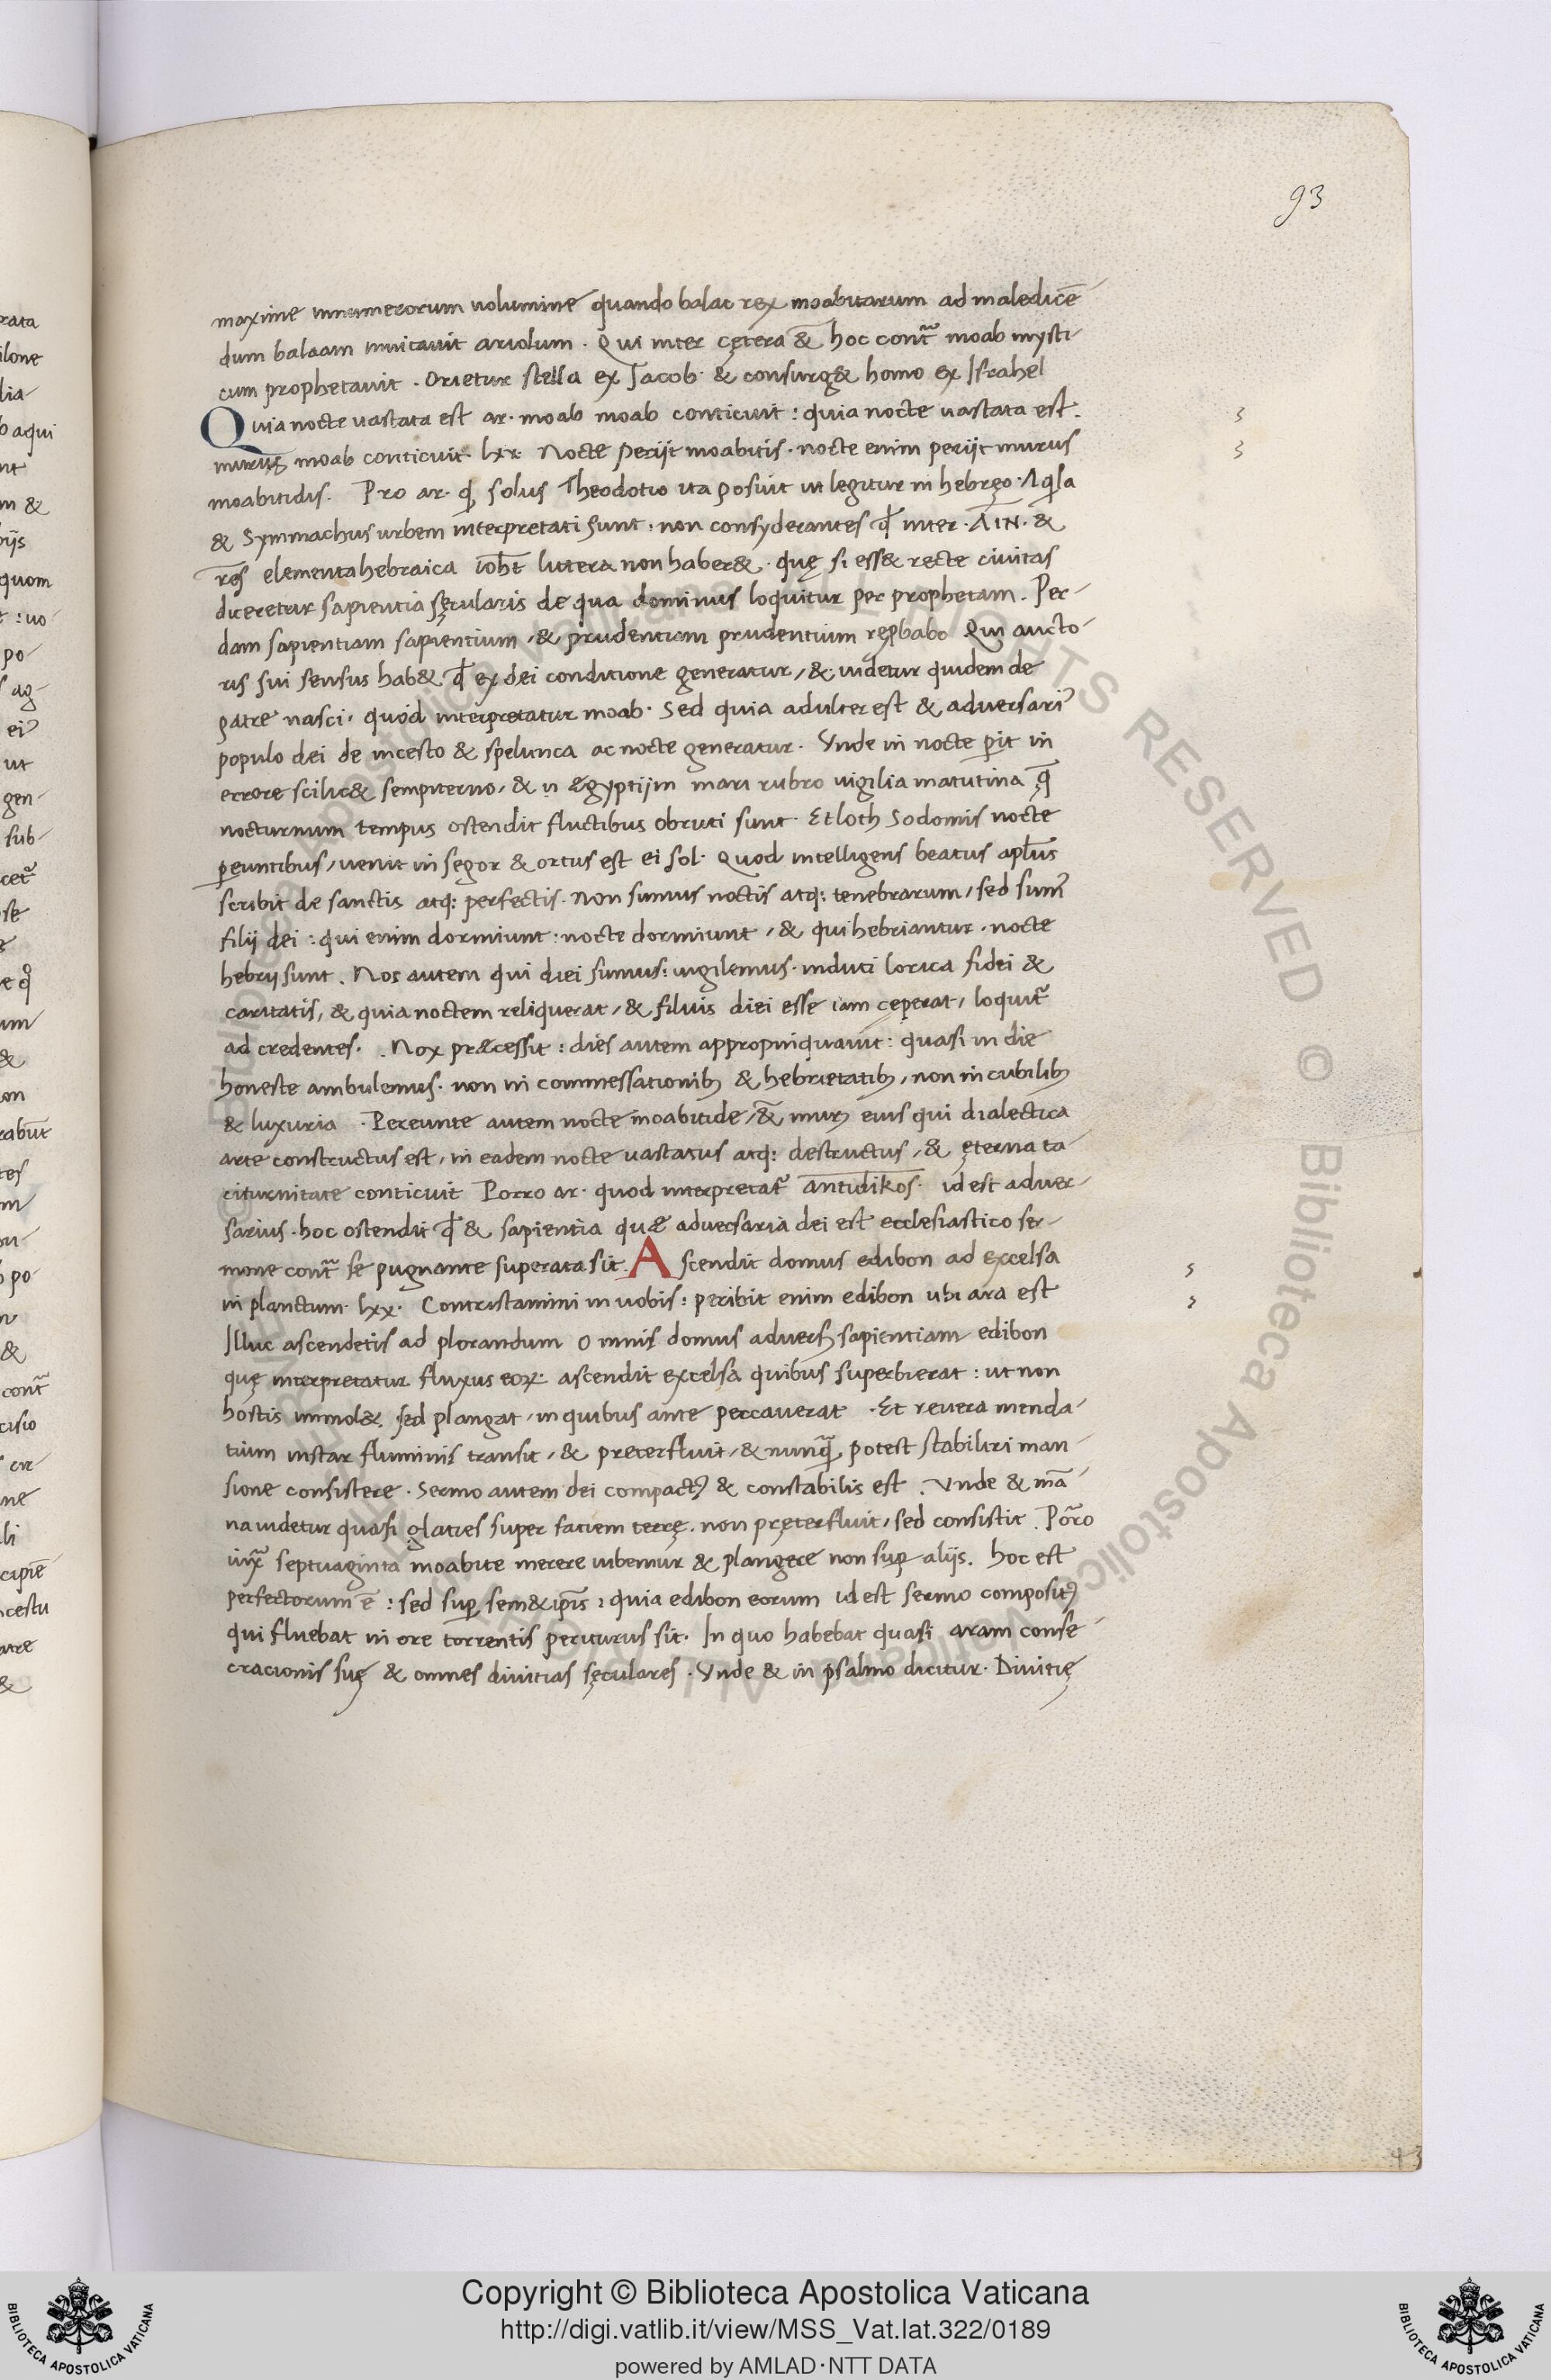 93
maxime innumerorum uolumine quando balac rex moabitarum ad maledicē
dum balaam inuitauit ariolum. Qui inter cętera & hoc cont̃ moab mysti
cum prophetauit. Orietur stella ex Jacob & consurg& homo ex Israhel
Quia nocte uastata est ar. moab moab conticuit: quia nocte uastata est.
murus moab conticuit. lxx. Nocte perijt moabitis. nocte enim perijt murus
moabitidis. Pro ar. qđ solus Theodotio ita posuit ut legitur in hebręo. Aqla
& Symmachus urbem interpretati sunt. non consyderantes qđ inter. AIN. &
res elementa hebraica ioht littera non haber&. quę si ess& recte ciuitas
diceretur sapientia sęcularis de qua dominus loquitur per prophetam. Per-
dam sapientiam sapientium, & prudentiam prudentium repbabo Qui aucto-
ris sui sensus hab& qđ ex dei conditione generatur, & uidetur quidem de
patre nasci, quod interpretatur moab. Sed quia adulter est & aduersari᾽
populo dei de incesto & spelunca ac nocte generatur. Vnde in nocte perit in
errore scilic& sempiterno, & ii Ægyptij in mari rubro uigilia matutina q̄
nocturnum tempus ostendit fluctibus obruti sunt. Et loth Sodomis nocte
peuntibus, uenit in segor & ortus est ei sol. Quod intelligens beatus aplus
scribit de sanctis atq: perfectis. Non sumus noctis atq: tenebrarum, sed sum᾽
filij dei: qui enim dormiunt: nocte dormiunt, & qui hebriantur. nocte
hebrij sunt. Nos autem qui diei sumus: uigilemus. induti lorica fidei &
caritatis, & quia noctem reliquerat, & filius diei esse iam ceperat, loquit᾽
ad credentes. Nox præcessit: dies autem appropinquauit: quasi in die
honeste ambulemus. non in commessationib; & hebrietatib;, non in cubilib;
& luxuria. Pereunte autem nocte moabitide, & mur; eius qui dialectica
arte constructus est, in eadem nocte uastatus atq: destructus, & ęterna ta-
citurnitate conticuit Porro ar. quod interpretat᾽ antidikos. id est aduer-
sarius. hoc ostendit qđ & sapientia quæ aduersaria dei est ecclesiastico ser-
mone cont̃ se pugnante superata sit. Ascendit domus edibon ad excelsa
in planctum. lxx. Contristamini in uobis: peribit enim edibon ubi ara est
Illuc ascendetis ad plorandum Omnis domus aduers; sapientiam edibon
quę interpretatur fluxus eoꝝ. ascendit excelsa quibus superbierat: ut non
hostis immol&. sed plangat, in quibus ante peccauerat. Et reuera menda-
tium instar fluminis transit, & preterfluit, & nunq̃ potest stabiliri man-
sione consistere. Sermo autem dei compact᾽ & constabilis est. Vnde & mā
na uidetur quasi glacies super faciem terrę. non pręterfluit, sed consistit. Porro
iux̃ septuaginta moabite merere iubemur & plangere non sup alijs. hoc est
perfectorum ē: sed sup sem&ipis: quia edibon eorum id est sermo composit᾽
qui fluebat in ore torrentis periturus sit. In quo habebat quasi aram conse-
cracionis suę & omnes diuitias sęculares. Vnde & in psalmo dicitur. Diuitię
Copyright © Biblioteca Apostolica Vaticana
http://digi.vatlib.it/view/MSS_Vat.lat.322/0189
powered by AMLAD·NTT DATA
BIBLIOTECA APOSTOLICA VATICANA
BIBLIOTECA APOSTOLICA VATICANA